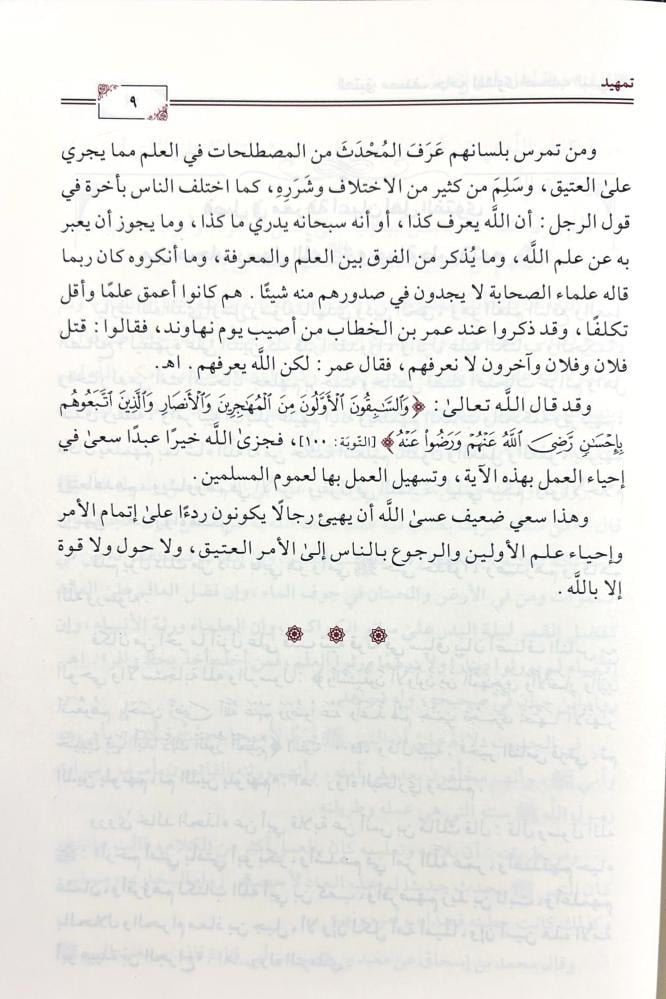 تمهيد
٩
ومن تمرس بلسانهم عَرَفَ المُحْدَثَ من المصطلحات في العلم مما يجري
علىٰ العتيق، وسَلِمَ من كثير من الاختلاف وشَرَرِهِ، كما اختلف الناس بأخرة في
قول الرجل: أن اللَّه يعرف كذا، أو أنه سبحانه يدري ما كذا، وما يجوز أن يعبر
به عن علم اللَّه، وما يُذكر من الفرق بين العلم والمعرفة، وما أنكروه كان ربما
قاله علماء الصحابة لا يجدون في صدورهم منه شيئًا. هم كانوا أعمق علمًا وأقل
تكلفًا، وقد ذكروا عند عمر بن الخطاب من أصيب يوم نهاوند، فقالوا: قتل
فلان وفلان وآخرون لا نعرفهم، فقال عمر: لكن اللَّه يعرفهم. اهـ.
وقد قال اللَّه تعالىٰ: ﴿وَٱلسَّٰبِقُونَ ٱلْأَوَّلُونَ مِنَ ٱلْمُهَٰجِرِينَ وَٱلْأَنصَارِ وَٱلَّذِينَ ٱتَّبَعُوهُم
بِإِحْسَٰنٍ رَّضِىَ ٱللَّهُ عَنْهُمْ وَرَضُوا۟ عَنْهُ﴾ [التوبَة: ١٠٠]، فجزىٰ اللَّه خيرًا عبدًا سعىٰ في
إحياء العمل بهذه الآية، وتسهيل العمل بها لعموم المسلمين.
وهذا سعي ضعيف عسىٰ اللَّه أن يهيئ رجالًا يكونون ردءًا علىٰ إتمام الأمر
وإحياء علم الأولين والرجوع بالناس إلىٰ الأمر العتيق، ولا حول ولا قوة
إلا باللَّه.